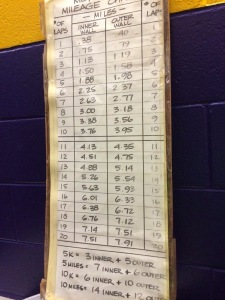 MILEAGE
# OF — MILES — # OF
LAPS INNER WALL OUTER WALL LAPS
1 .38 .40 1
2 .75 .79 2
3 1.13 1.19 3
4 1.50 1.58 4
5 1.88 1.98 5
6 2.25 2.37 6
7 2.63 2.77 7
8 3.00 8
9 3.38 3.56 9
10 3.76 3.95 10
11 4.13 4.35 11
12 4.51 4.75 12
13 4.88 5.14 13
14 5.26 5.54 14
15 5.63 5.93 15
16 6.01 6.33 16
17 6.38 6.72 17
18 6.76 7.12 18
19 7.14 7.51 19
20 7.51 7.91 20
5K = 3 INNER + 5 OUTER
5 MILES = 7 INNER + 6 OUTER
10K = 6 INNER + 10 OUTER
10 MILES = 14 INNER + 12 OUTER